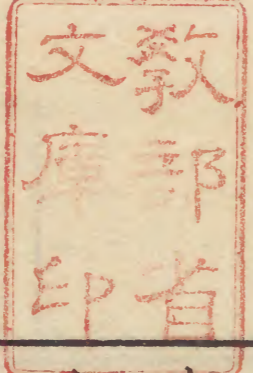 敎部省
文庫印